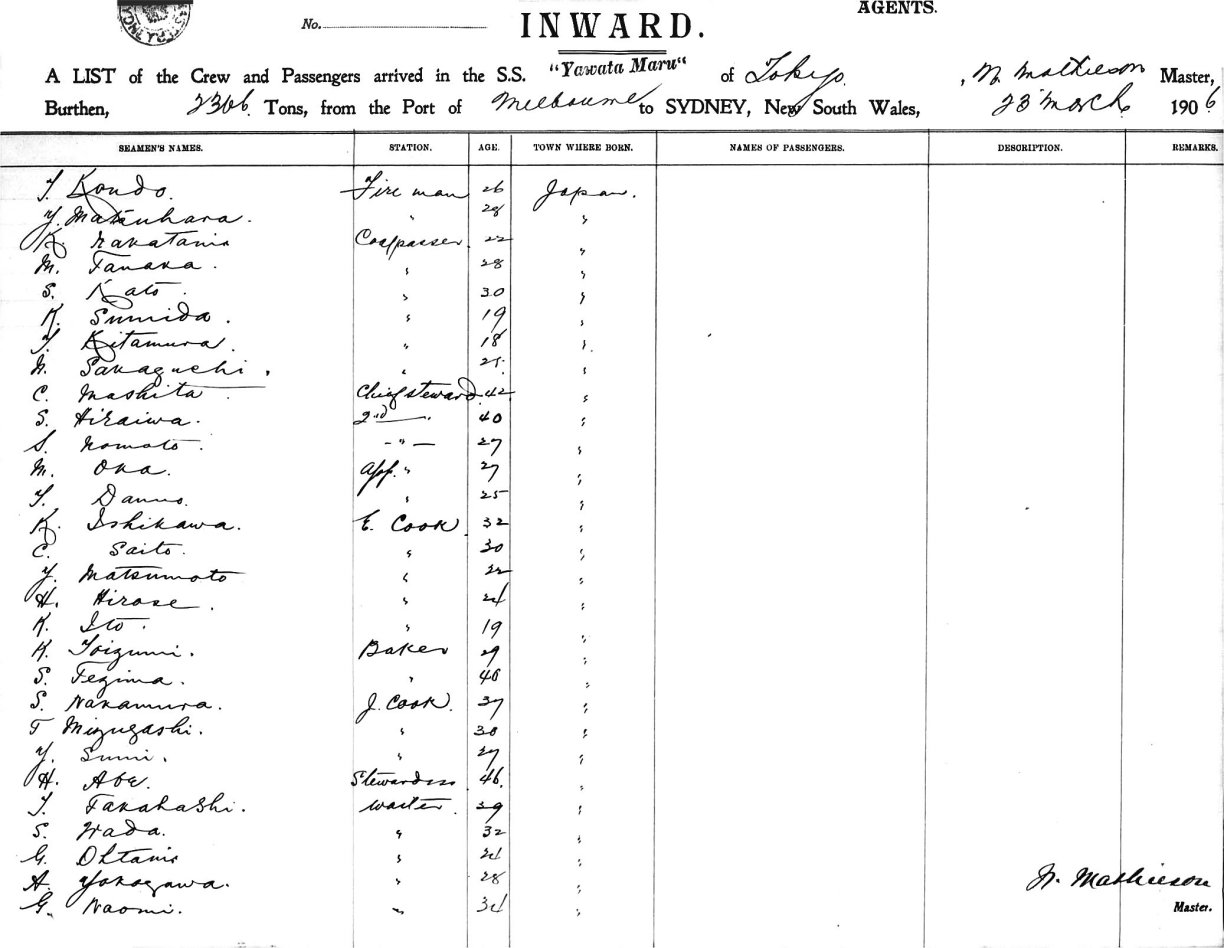 AGENTS.
No.
INWARD.
A LIST of the Crew and Passengers arrived in the S.S. "Yawata Maru" of Tokyo, Mathieson Master,
Burthen, 2366 Tons, from the Port of Melbourne to SYDNEY, New South Wales, 23 March 1906
SEAMEN'S NAMES. STATION. AGE. TOWN WHERE BORN. NAMES OF PASSENGERS. DESCRIPTION. REMARKS.
T. Kondo. Fireman 26 Japan.
Y. Matsuhara. " 28 "
K. Nakatani Coalpasser 22 "
M. Tanaka. " 28 "
S. Kato. " 30 "
K. Sumida. " 19 "
T. Kitamura. " 18 "
N. Sakaguchi. " "
C. Mashita. Chief steward 42 "
S. Hiraiwa. 2nd — 40 "
S. Nomoto. — " — 27 "
M. Oka. App. " 27 "
T. Danno. " 25 "
K. Ishikawa. E. Cook 32 "
C. Saito. " 30 "
Y. Matsumoto " 22 "
H. Hirose. " 24 "
K. Ito. " 19 "
K. Toizumi. Baker 29 "
S. Tezima. " 46 "
S. Nakamura. J. Cook. 37 "
T Mizugashi. " 30 "
Y. Sumi. " 27 "
H. Abe. Stewardess 46 "
T. Takahashi. Waiter. 29 "
S. Wada. " 32 "
G. Ohtani " 24 "
A. Yokogawa. " 28 "
G. Naomi. " 34 "
Mathieson
Master.